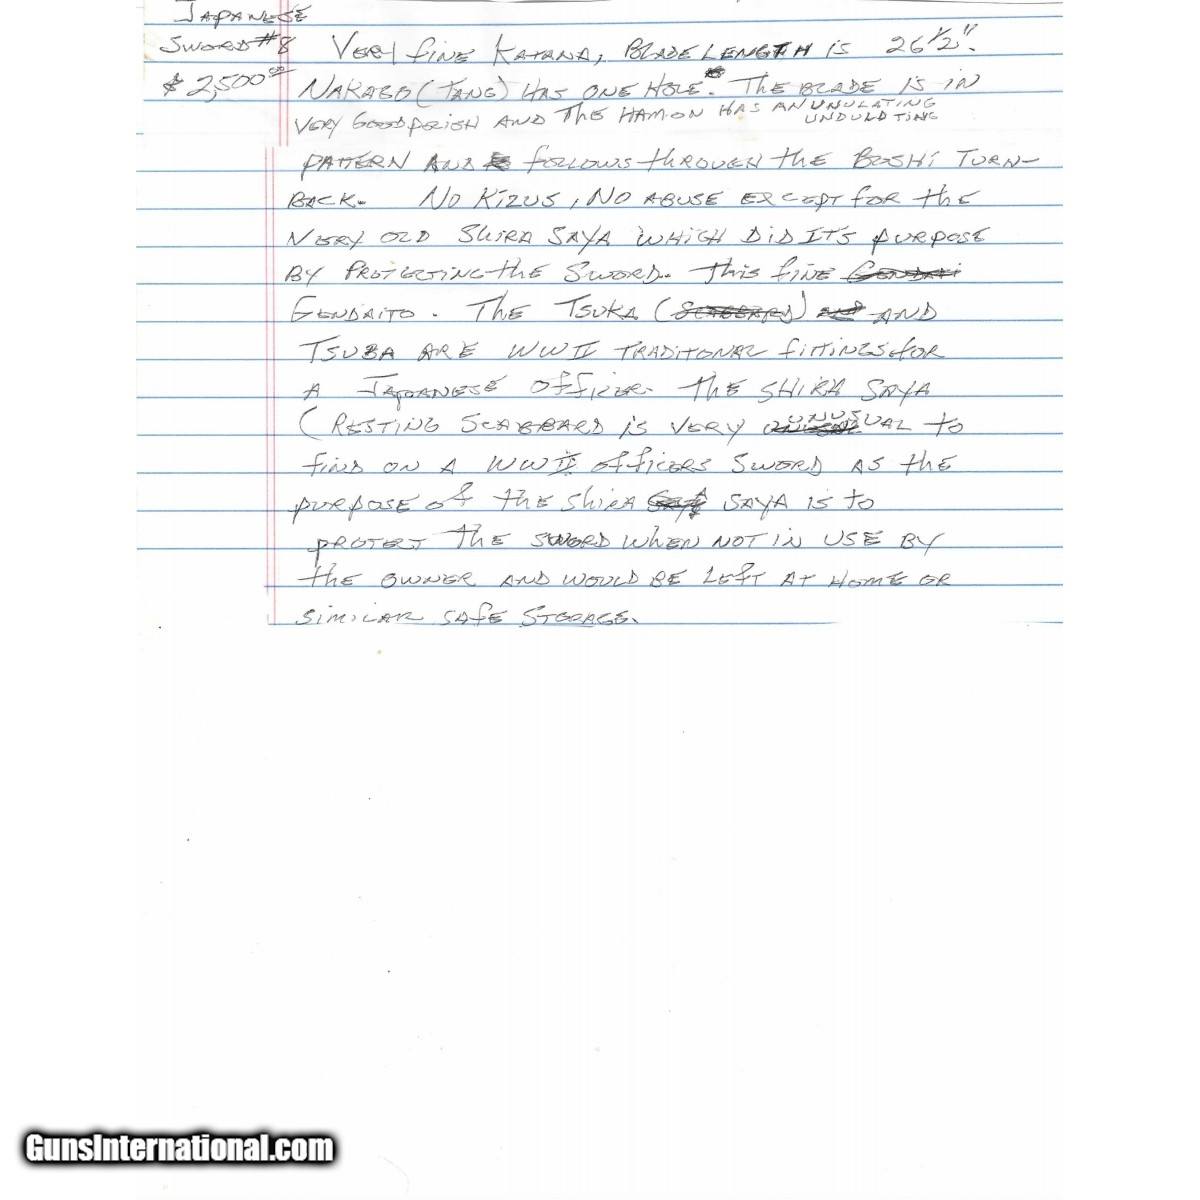 JAPANESE
SWORD #8 VERY fINE KATANA, BLADE LENGTH is 26 1/2".
$ 2,500.00 NAKAGO (TANG) HAS ONE HOLE. THE BLADE IS IN
VERY GOOD POLISH AND THE HAMON HAS AN UNULATING
UNDULATING
PATTERN AND FOLLOWS THROUGH THE BOSHI TURN-
BACK. NO KIZUS, NO ABUSE EXCEPT FOR THE
VERY OLD SHIRA SAYA WHICH DID ITS PURPOSE
BY PROTECTING THE SWORD. This fINE
GENDAITO. THE TSUKA (SCABBARD) AND
TSUBA ARE WWII TRADITONAL FITTINGS FOR
A JAPANESE OFFICER. THE SHIRA SAYA
(RESTING SCABBARD IS VERY UNUSUAL to
FIND ON A WWII OFFICERS SWORD AS THE
PURPOSE OF THE SHIRA SAYA IS TO
PROTECT THE SWORD WHEN NOT IN USE BY
THE OWNER AND WOULD BE LEFT AT HOME OR
SIMILAR SAFE STORAGE.
GunsInternational.com